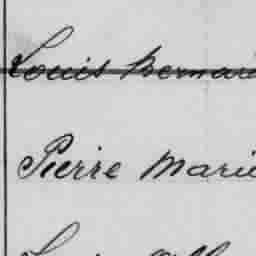 Louis Bernard
Pierre Marie